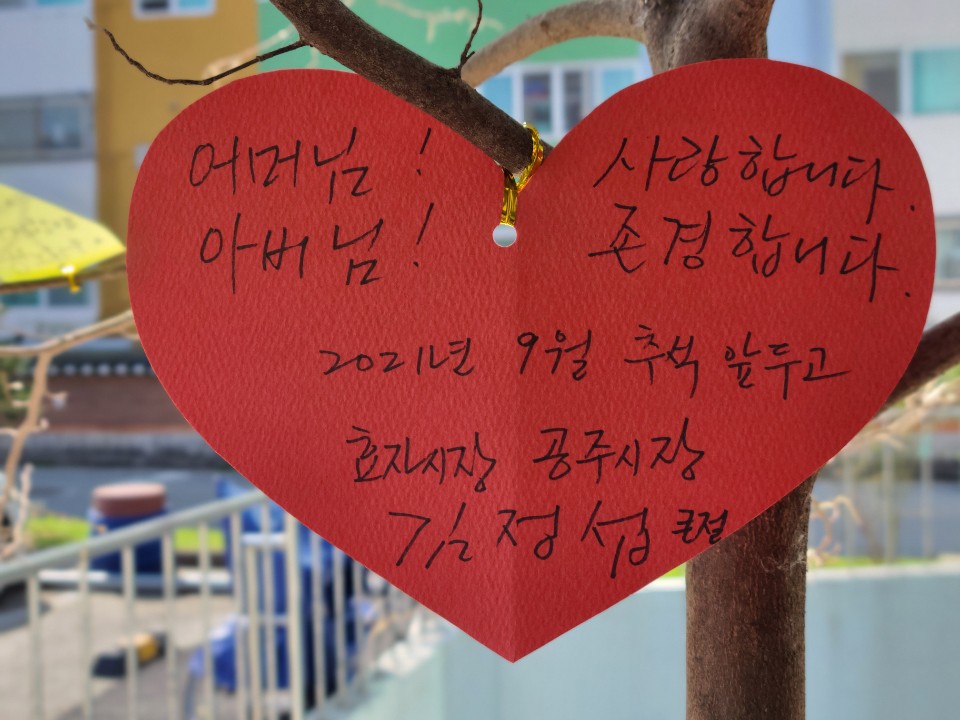 어머님! 사랑합니다.
아버님! 존경합니다.
2021년 9월 추석 앞두고
효자시장 공주시장
김정섭 큰절